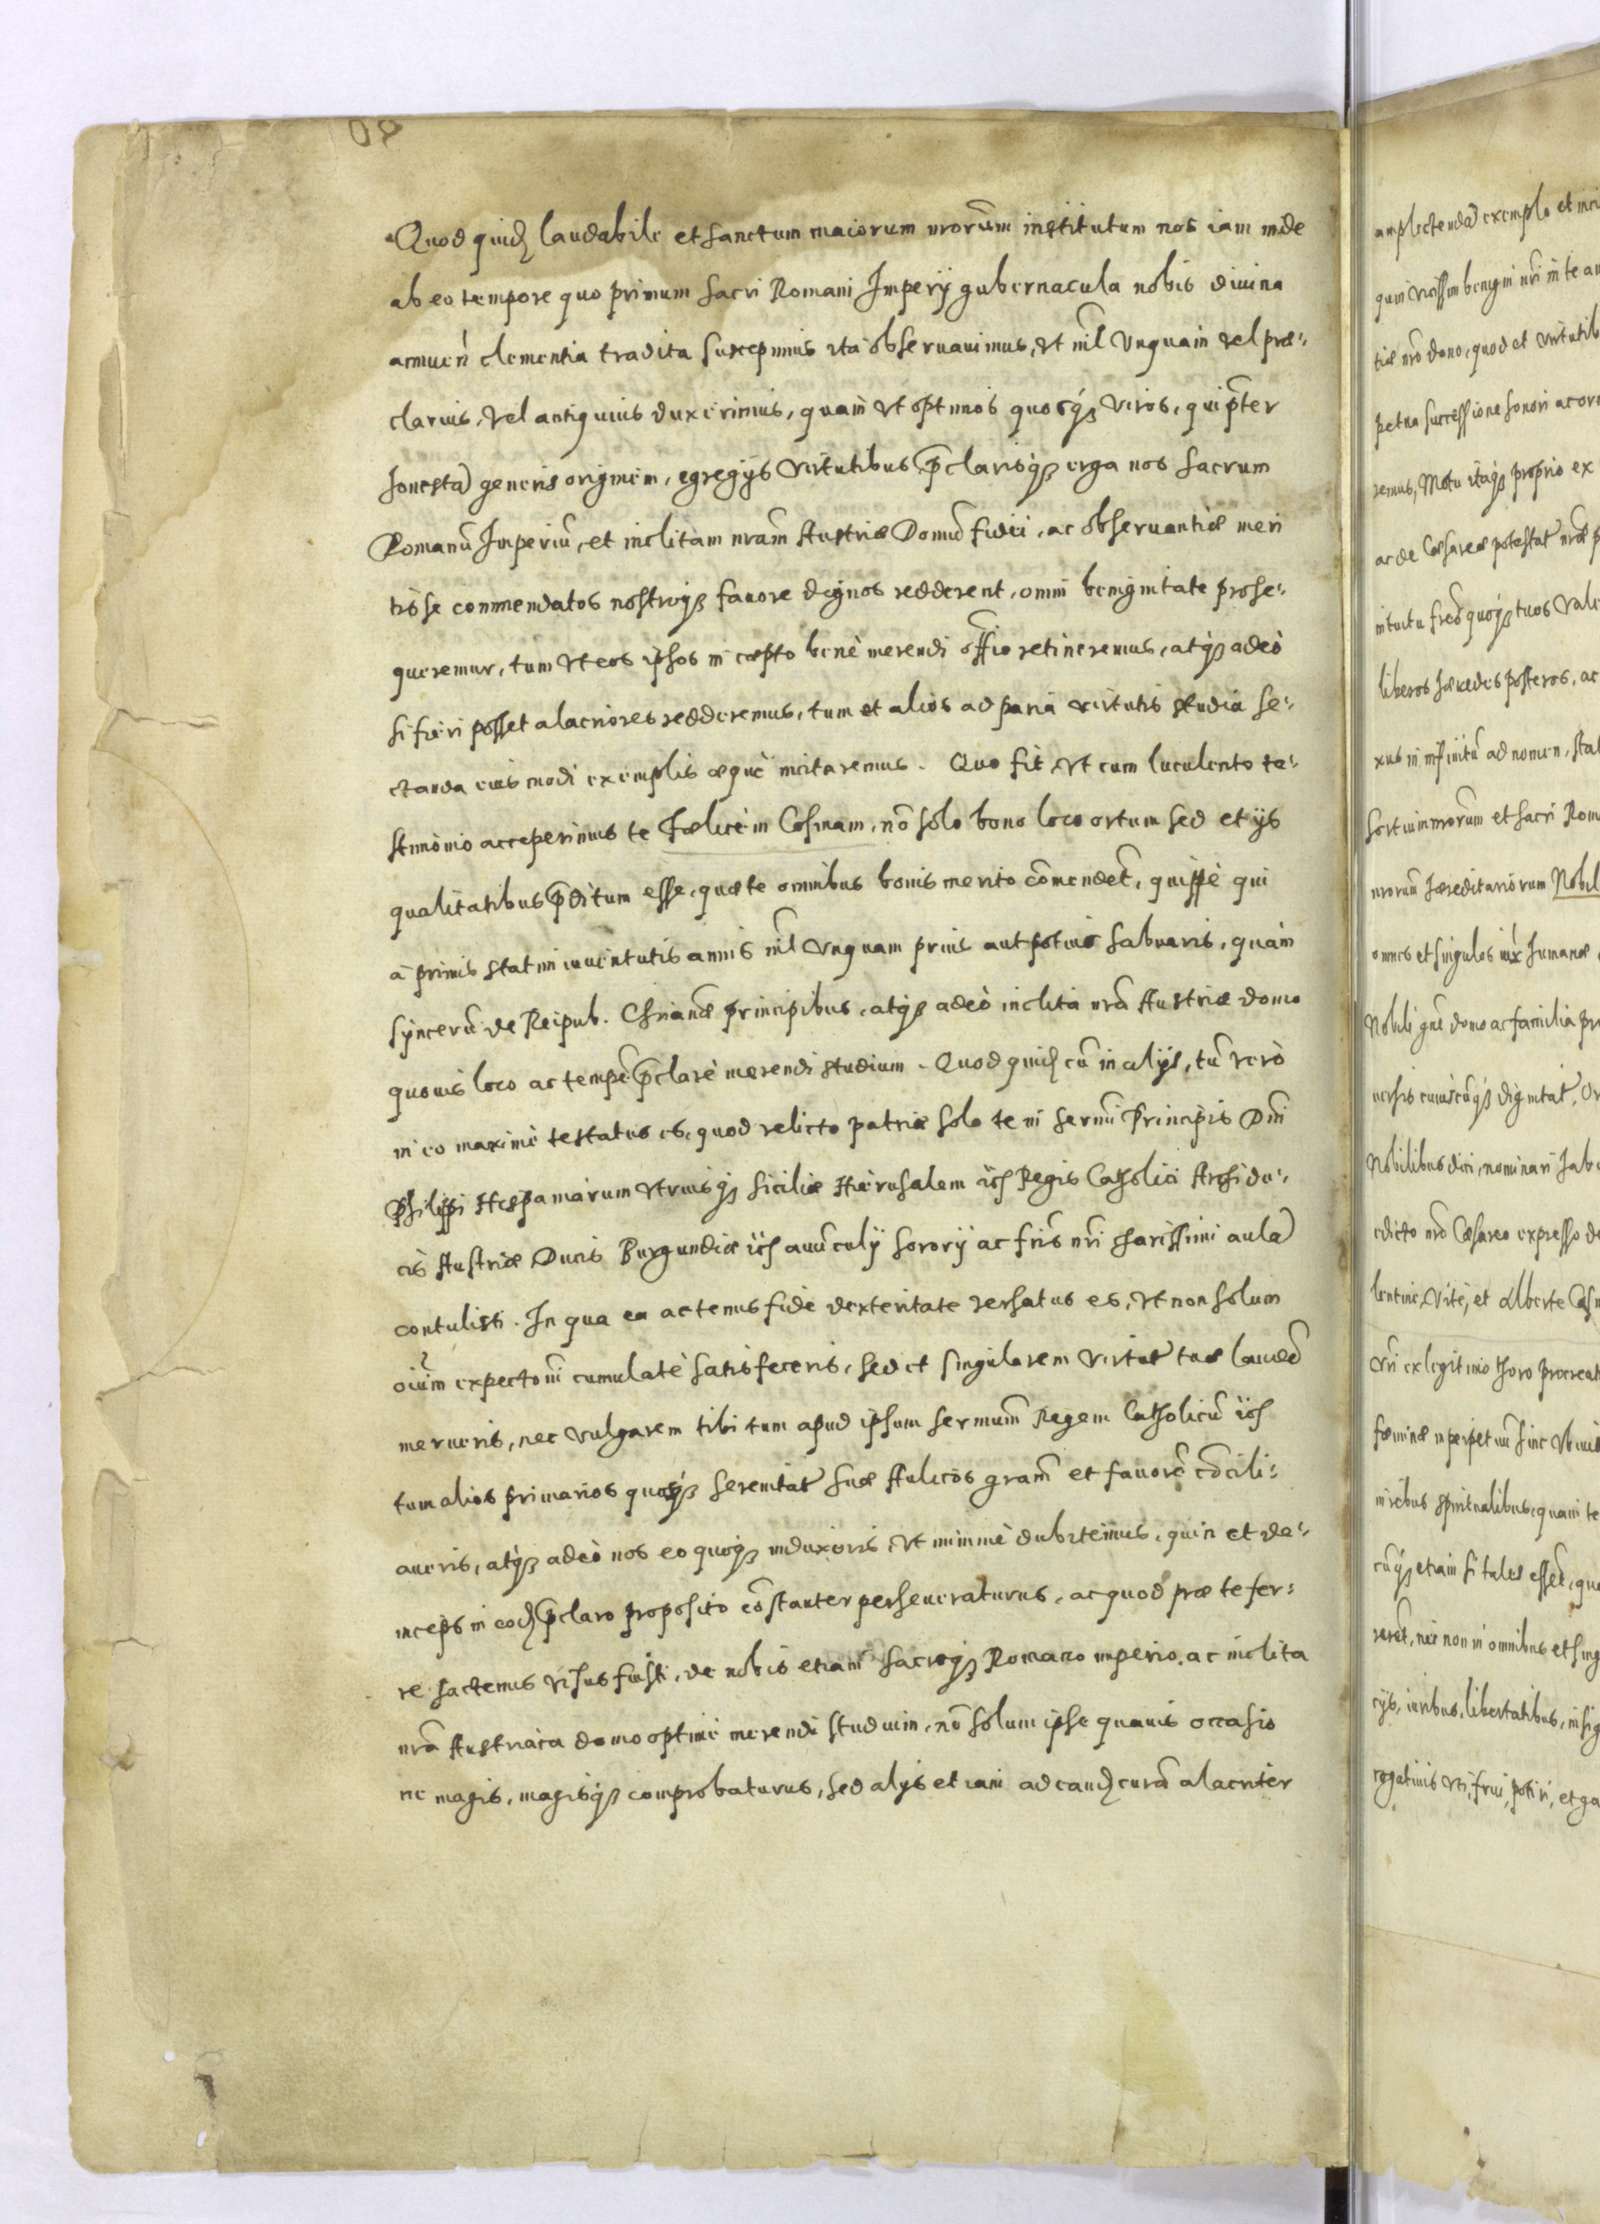 Quod quidē laudabile et sanctum maiorum nrorum institutum nos iam inde
ab eo tempore quo primum Sacri Romani Imperij gubernacula nobis diuina
clementia tradita suscepimus ita obseruauimus, vt nil vnquam vel præ-
clarius, vel antiquius duxerimus, quam vt optimos quosq3 viros, qui pter
honestā generis originem, egregijs virtutibus p̄clarisq3 erga nos Sacrum
Romanū Imperiū, et inclitam nram Austriæ Domū fidei, ac obseruantiæ meri
tis se commendatos nostroq3 fauore dignos redderent, omni benignitate prose-
queremur, tum vt eos ipsos in cæpto benè merendi offio retineremus, atq3 adeò
si fieri posset alacriores redderemus, tum et alios ad paria virtutis studia se-
ctanda eius modi exemplis æquè incitaremus. Quo fit, vt cum luculento te-
stimonio acceperimus te Fœlicem Cosmam, nō solo bono loco ortum sed et ijs
qualitatibus p̄ditum esse, quæ te omnibus bonis merito cōmendēt, quippè qui
à primis statim iuuentutis annis nil vnquam prius aut potius habueris, quàm
syncerū de Reipub. Chrianæ principibus, atq3 adeò inclita nrā Austriæ domo
quouis loco ac tempe p̄clarè merendi studium. Quod quidē cū in alijs, tū verò
in eo maximè testatus es, quod relicto patriæ solo te in Sermi Principis Dni
Philippi Hispaniarum vtriusq3 Siciliæ Hierusalem &c Regis Catholici Archidu-
cis Austriæ Ducis Burgundiæ &c auūculij sororij ac fris nri charissimi aulā
contulisti. In qua ea actenus fide dexteritate versatus es, vt non solum
oium expectoni cumulatè satisfeceris, sed et singularem virtut tuæ laudē
merueris, nec vulgarem tibi tum apud ipsum sermum Regem Catholicū &c
tum alios primarios quosq3 serenitat suæ Aulicos gram et fauorē cōcili-
aueris, atq3 adeò nos eo quoq3 induxeris, vt minimè dubitemus, quin et de-
inceps in eodē p̄claro proposito cōstanter perseueraturus, ac quod præ te fer-
re hactenus visus fuisti, de nobis etiam Sacroq3 Romano imperio, ac inclita
nrā Austriaca domo optimè merendi studium, nō solum ipse quauis occasio
ne magis, magisq3 comprobaturus, sed alijs etiam ad eandē curā alacriter
amplectendā exemplo et
quin vicissim benigni nri in te
tiæ nro dono, quod et
petua successione honori ac
remus, Motu itaq3 proprio ex
ac de Cæsareæ potestat nræ
intuitu quoq3 tuos
liberos hæredes posteros, ac
xus in infinitū ad nomen,
nrorum et Sacri
nrorum hæreditariorum
omnes et singulos humanæ
Nobili domo ac familia
dignitat,
Nobilibus dici, nominari
edicto nro Cæsareo expresso
Vite, et Alberte
vri ex legitimo thoro
fœminæ inperpetuū hinc
in rebus spiritualibus, quam
etiam si tales essēt,
nec non in omnibus et
iuribus, libertatibus,
vti, frui, potiri, et